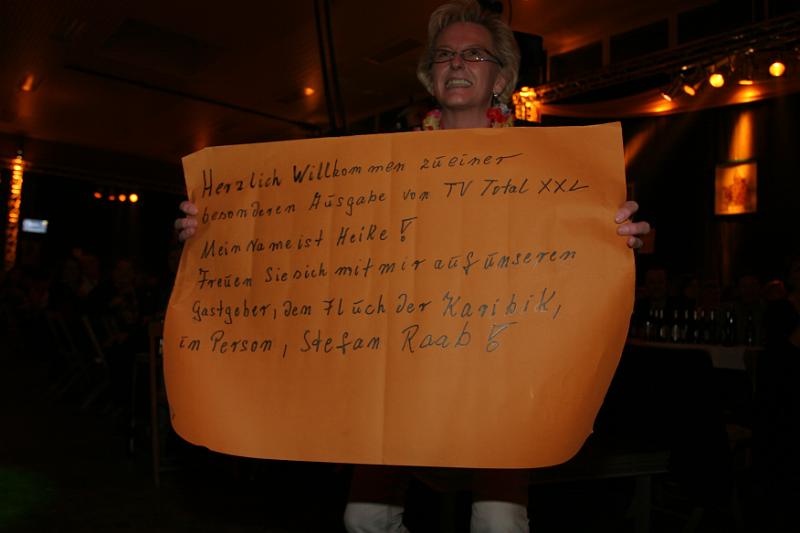 Herzlich Willkommen zu einer
besonderen Ausgabe von TV Total XXL
Mein Name ist Heike!
Freuen Sie sich mit mir auf unseren
Gastgeber, den Fluch der Karibik,
in Person, Stefan Raab!